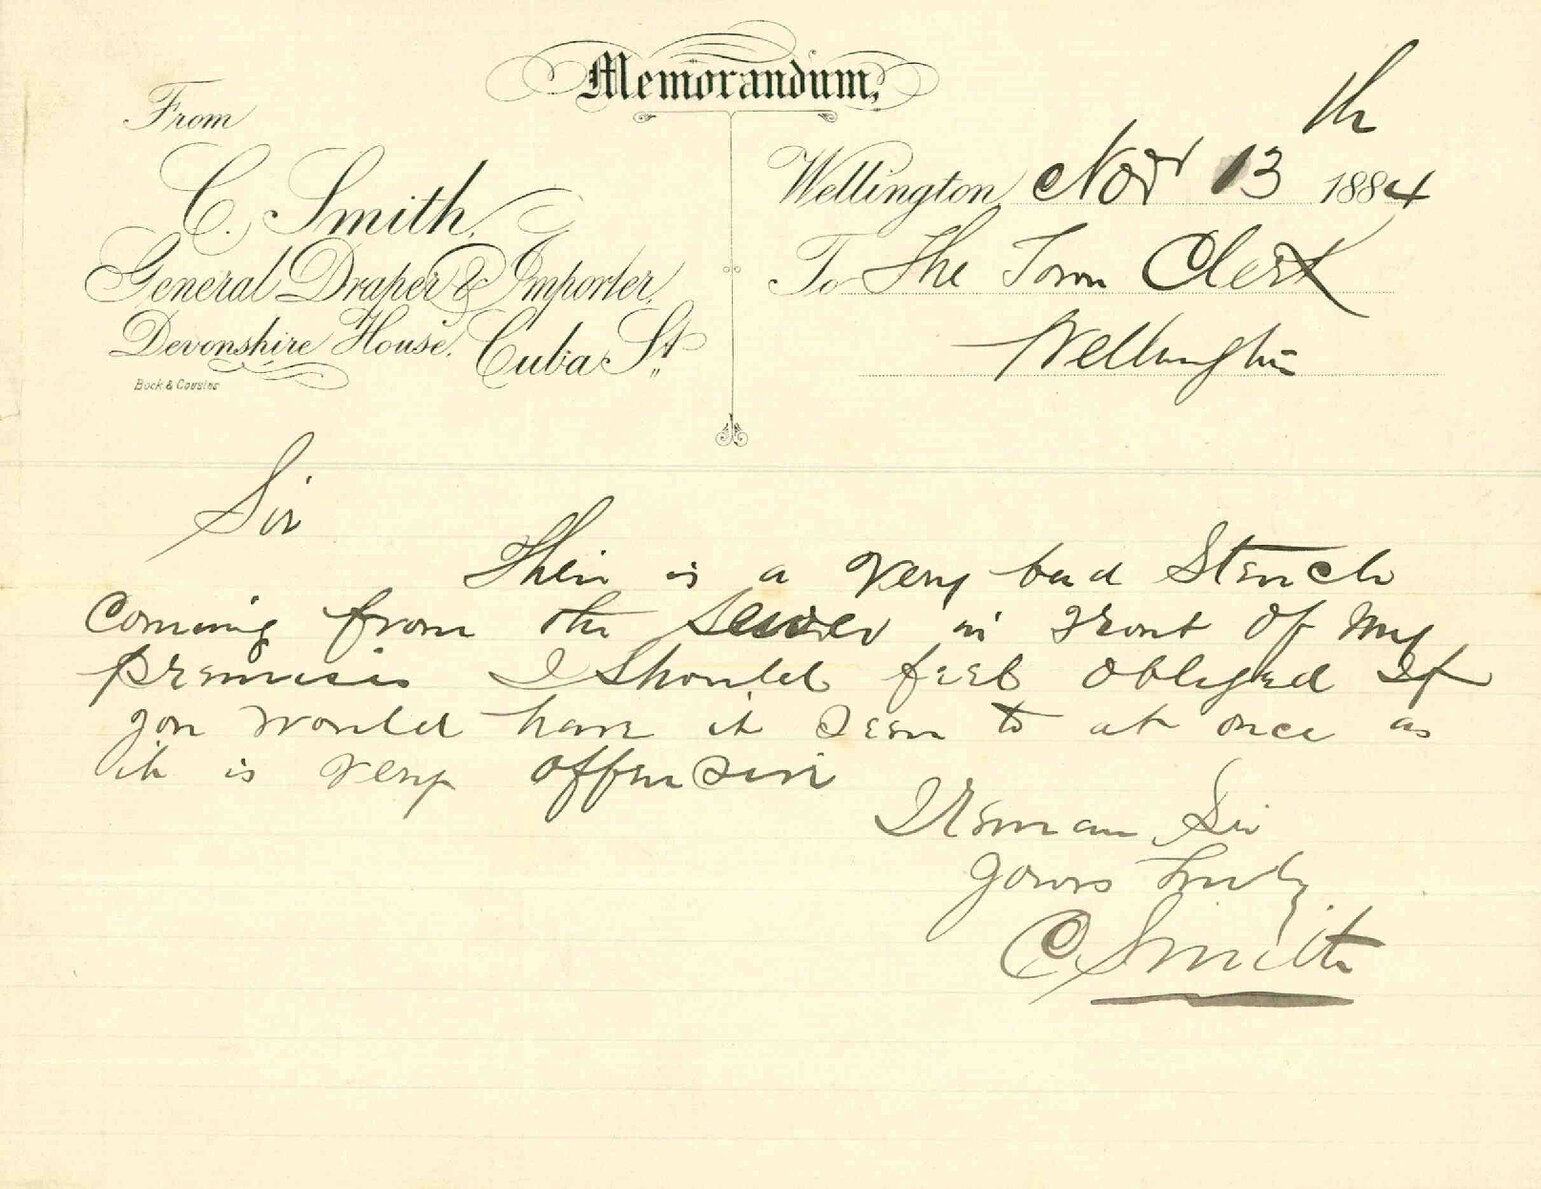 Memorandum,
From
C. Smith,
General Draper & Importer,
Devonshire House, Cuba St.
Bock & Cousins
Wellington, Novr 13th 1884
To The Town Clerk
Wellington
Sir
Their is a very bad Stench
Coming from the Sewer in front of My
premises I Should feel Obliged If
you would have it seen to at once as
it is very offensive
I Remain Sir
Yours Truly
C Smith